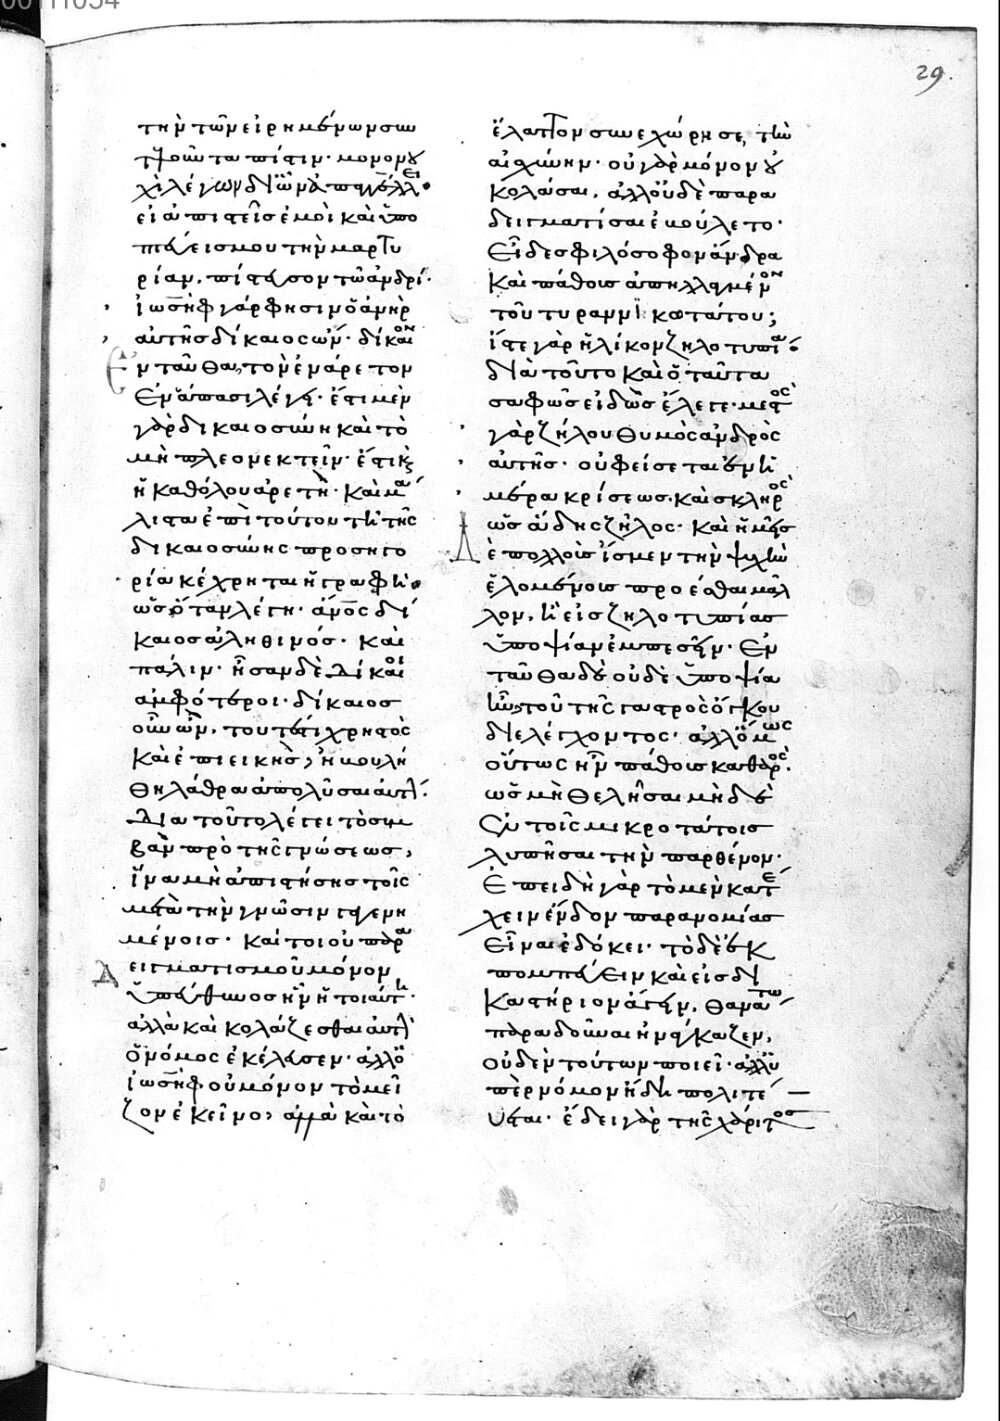 29
τὴν τῶν εἰρημένων συν
τρέφων τὰ πίστιν· μονονοὐ
χὶ λέγων διὼν ἀπαγγέλλει·
εἰ ἀπιστεῖς ἐμοὶ καὶ ὑπο
πτεύεις μου τὴν μαρτυ
ρίαν, πίστευσον τῶ ἀνδρί·
ἰωσὴφ γάρ φησιν ὁ ἀνὴρ
αὐτῆς δίκαιος ὤν· δίκαιον
ἐνταῦθα, τὸν ἐνάρετον
ἐν ἅπασι λέγει· ἔστι μὲν
γὰρ δικαιοσύνη καὶ τὸ
μὴ πλεονεκτεῖν· ἔστι καὶ
ἡ καθόλου ἀρετή· καὶ μά
λιστα ἐπὶ τούτου τῆ τῆς
δικαιοσύνης προσηγο
ρία κέχρηται ἡ γραφή·
ὡς ὅταν λέγη· ἄνος δί
καιος ἀληθινός· καὶ
πάλιν· ἦσαν δὲ δίκαιοι
ἀμφότεροι· δίκαιος
οὖν ὢν, τουτέστι χρηστὸς
καὶ ἐπιεικής, ἠβουλή
θη λάθρα ἀπολῦσαι αὐτήν·
διὰ τοῦτο λέγει τὸ συμ
βὰν πρὸ τῆς γνώσεως,
ἵνα μὴ ἀπιστήσης τοῖς
μετὰ τὴν γνῶσιν γεγενη
μένοις· καίτοι οὐ παρα
δειγματισμοῦ μόνον
ὑπεύθυνος ἦν ἡ τοιαύτη·
ἀλλὰ καὶ κολάζεσθαι αὐτὴν
ὁ νόμος ἐκέλευσεν· ἀλλ' ὁ
ἰωσὴφ οὐ μόνον τὸ μεῖ
ζον ἐκεῖνο, ἀλλὰ καὶ τὸ
ἔλαττον συνεχώρησε, τὴν
αἰσχύνην· οὐ γὰρ μόνον οὐ
κολάσαι, ἀλλ' οὐδὲ παρα
δειγματίσαι ἐβούλετο·
εἶδες φιλόσοφον ἄνδρα
καὶ πάθους ἀπηλλαγμένον
τοῦ τυραννικωτάτου;
ἴστε γὰρ ἡλίκον ζηλοτυπία·
διὰ τοῦτο καὶ ὁ ταῦτα
σαφῶς εἰδὼς ἔλεγε· μεστὸς
γὰρ ζήλου θυμὸς ἀνδρὸς
αὐτῆς· οὐ φείσεται ἐν ἡ
μέρα κρίσεως· καὶ σκληρὸς
ὡς ἅδης ζῆλος· καὶ ἡμεῖς
δὲ πολλοὺς ἴσμεν τὴν ψυχὴν
ἑλομένους προέσθαι μᾶλ
λον, ἢ εἰς ζηλοτυπίας
ὑποψίαν ἐμπεσεῖν· ἐν
ταῦθα δὲ οὐδὲ ὑποψία
ἦν, τοῦ τῆς γαστρὸς ὄγκου
διελέγχοντος· ἀλλ' ὅμως
οὕτως ἦν πάθους καθαρός·
ὡς μὴ θελῆσαι μηδὲ
ἐν τοῖς μικροτάτοις
λυπῆσαι τὴν παρθένον·
ἐπειδὴ γὰρ τὸ μὲν κατέ
χειν ἔνδον παρανομίας
εἶναι ἐδόκει· τὸ δὲ ἐκ
πομπεύειν καὶ εἰς δι
καστήριον ἄγειν, θανάτω
παραδοῦναι ἠνάγκαζεν,
οὐδὲν τούτων ποιεῖ· ἀλλ' ὑ
πὲρ νόμον ἤδη πολιτεύ
εται· ἔδει γὰρ τῆς χάριτος